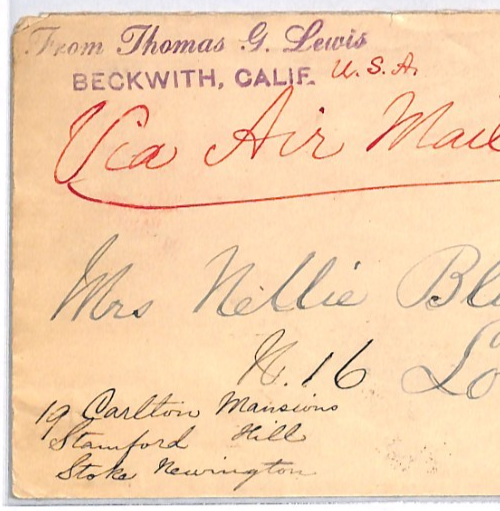 From Thomas G. Lewis
BECKWITH, CALIF. U.S.A.
Via Air Mail
Mrs Nellie Bl
N.16 Lo
19 Carlton Mansions
Stamford Hill
Stoke Newington